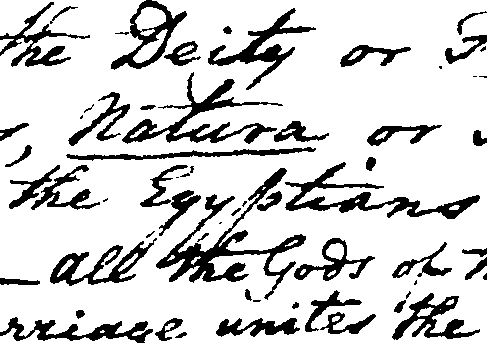 the Deity or F
, Natura or
the Egyptians
— all the Gods of
rriage unites the